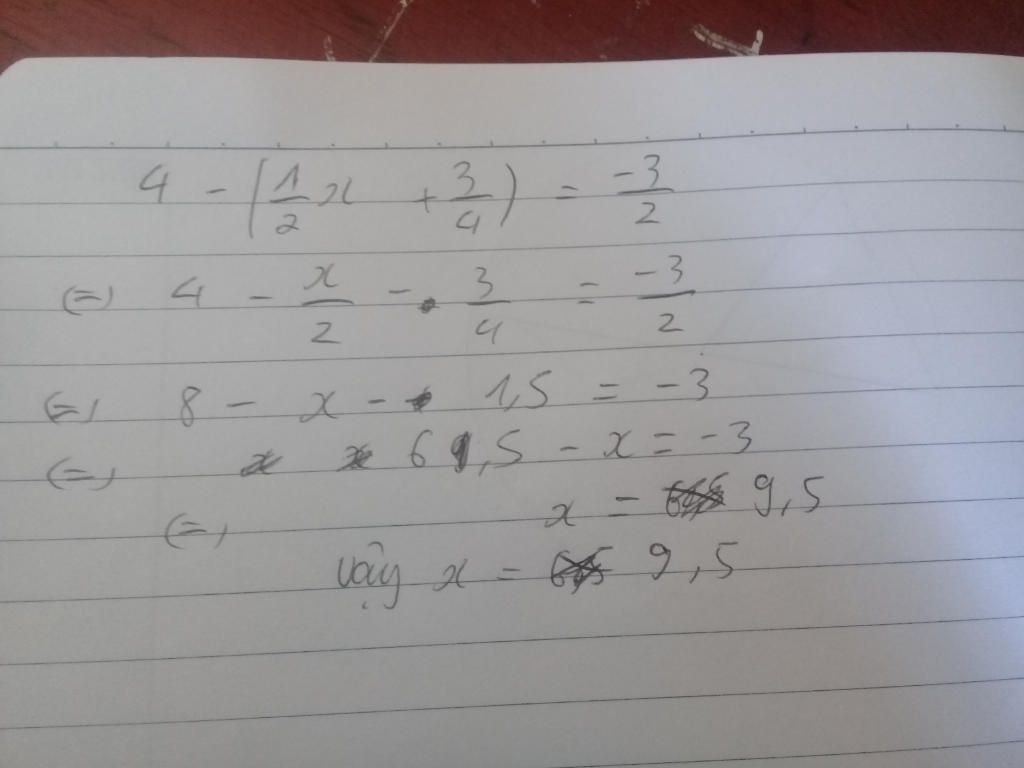 4 - (1/2 x + 3/4) = -3/2
(=) 4 - x/2 - 3/4 = -3/2
(=) 8 - x - 1,5 = -3
(=) 6,5 - x = -3
(=) x = 9,5
vậy x = 9,5